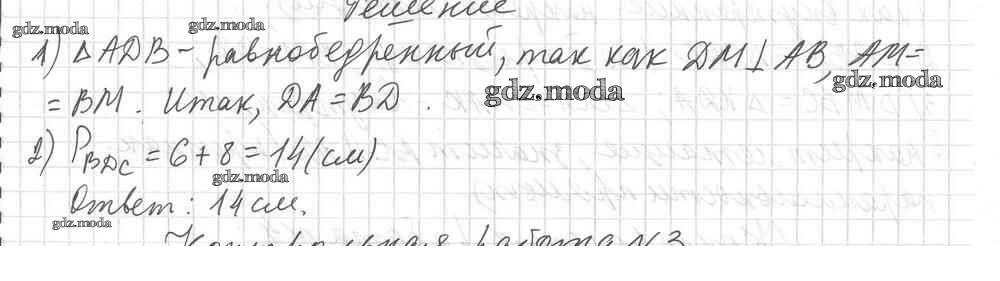 Решение
gdz.moda gdz.moda
1) Δ ADB - равнобедренный, так как DM ⊥ AB, AM =
gdz.moda gdz.moda
= BM. Итак, DA = BD.
2) P_BDC = 6 + 8 = 14 (см)
gdz.moda
Ответ: 14 см.
gdz.moda
Контрольная работа №3